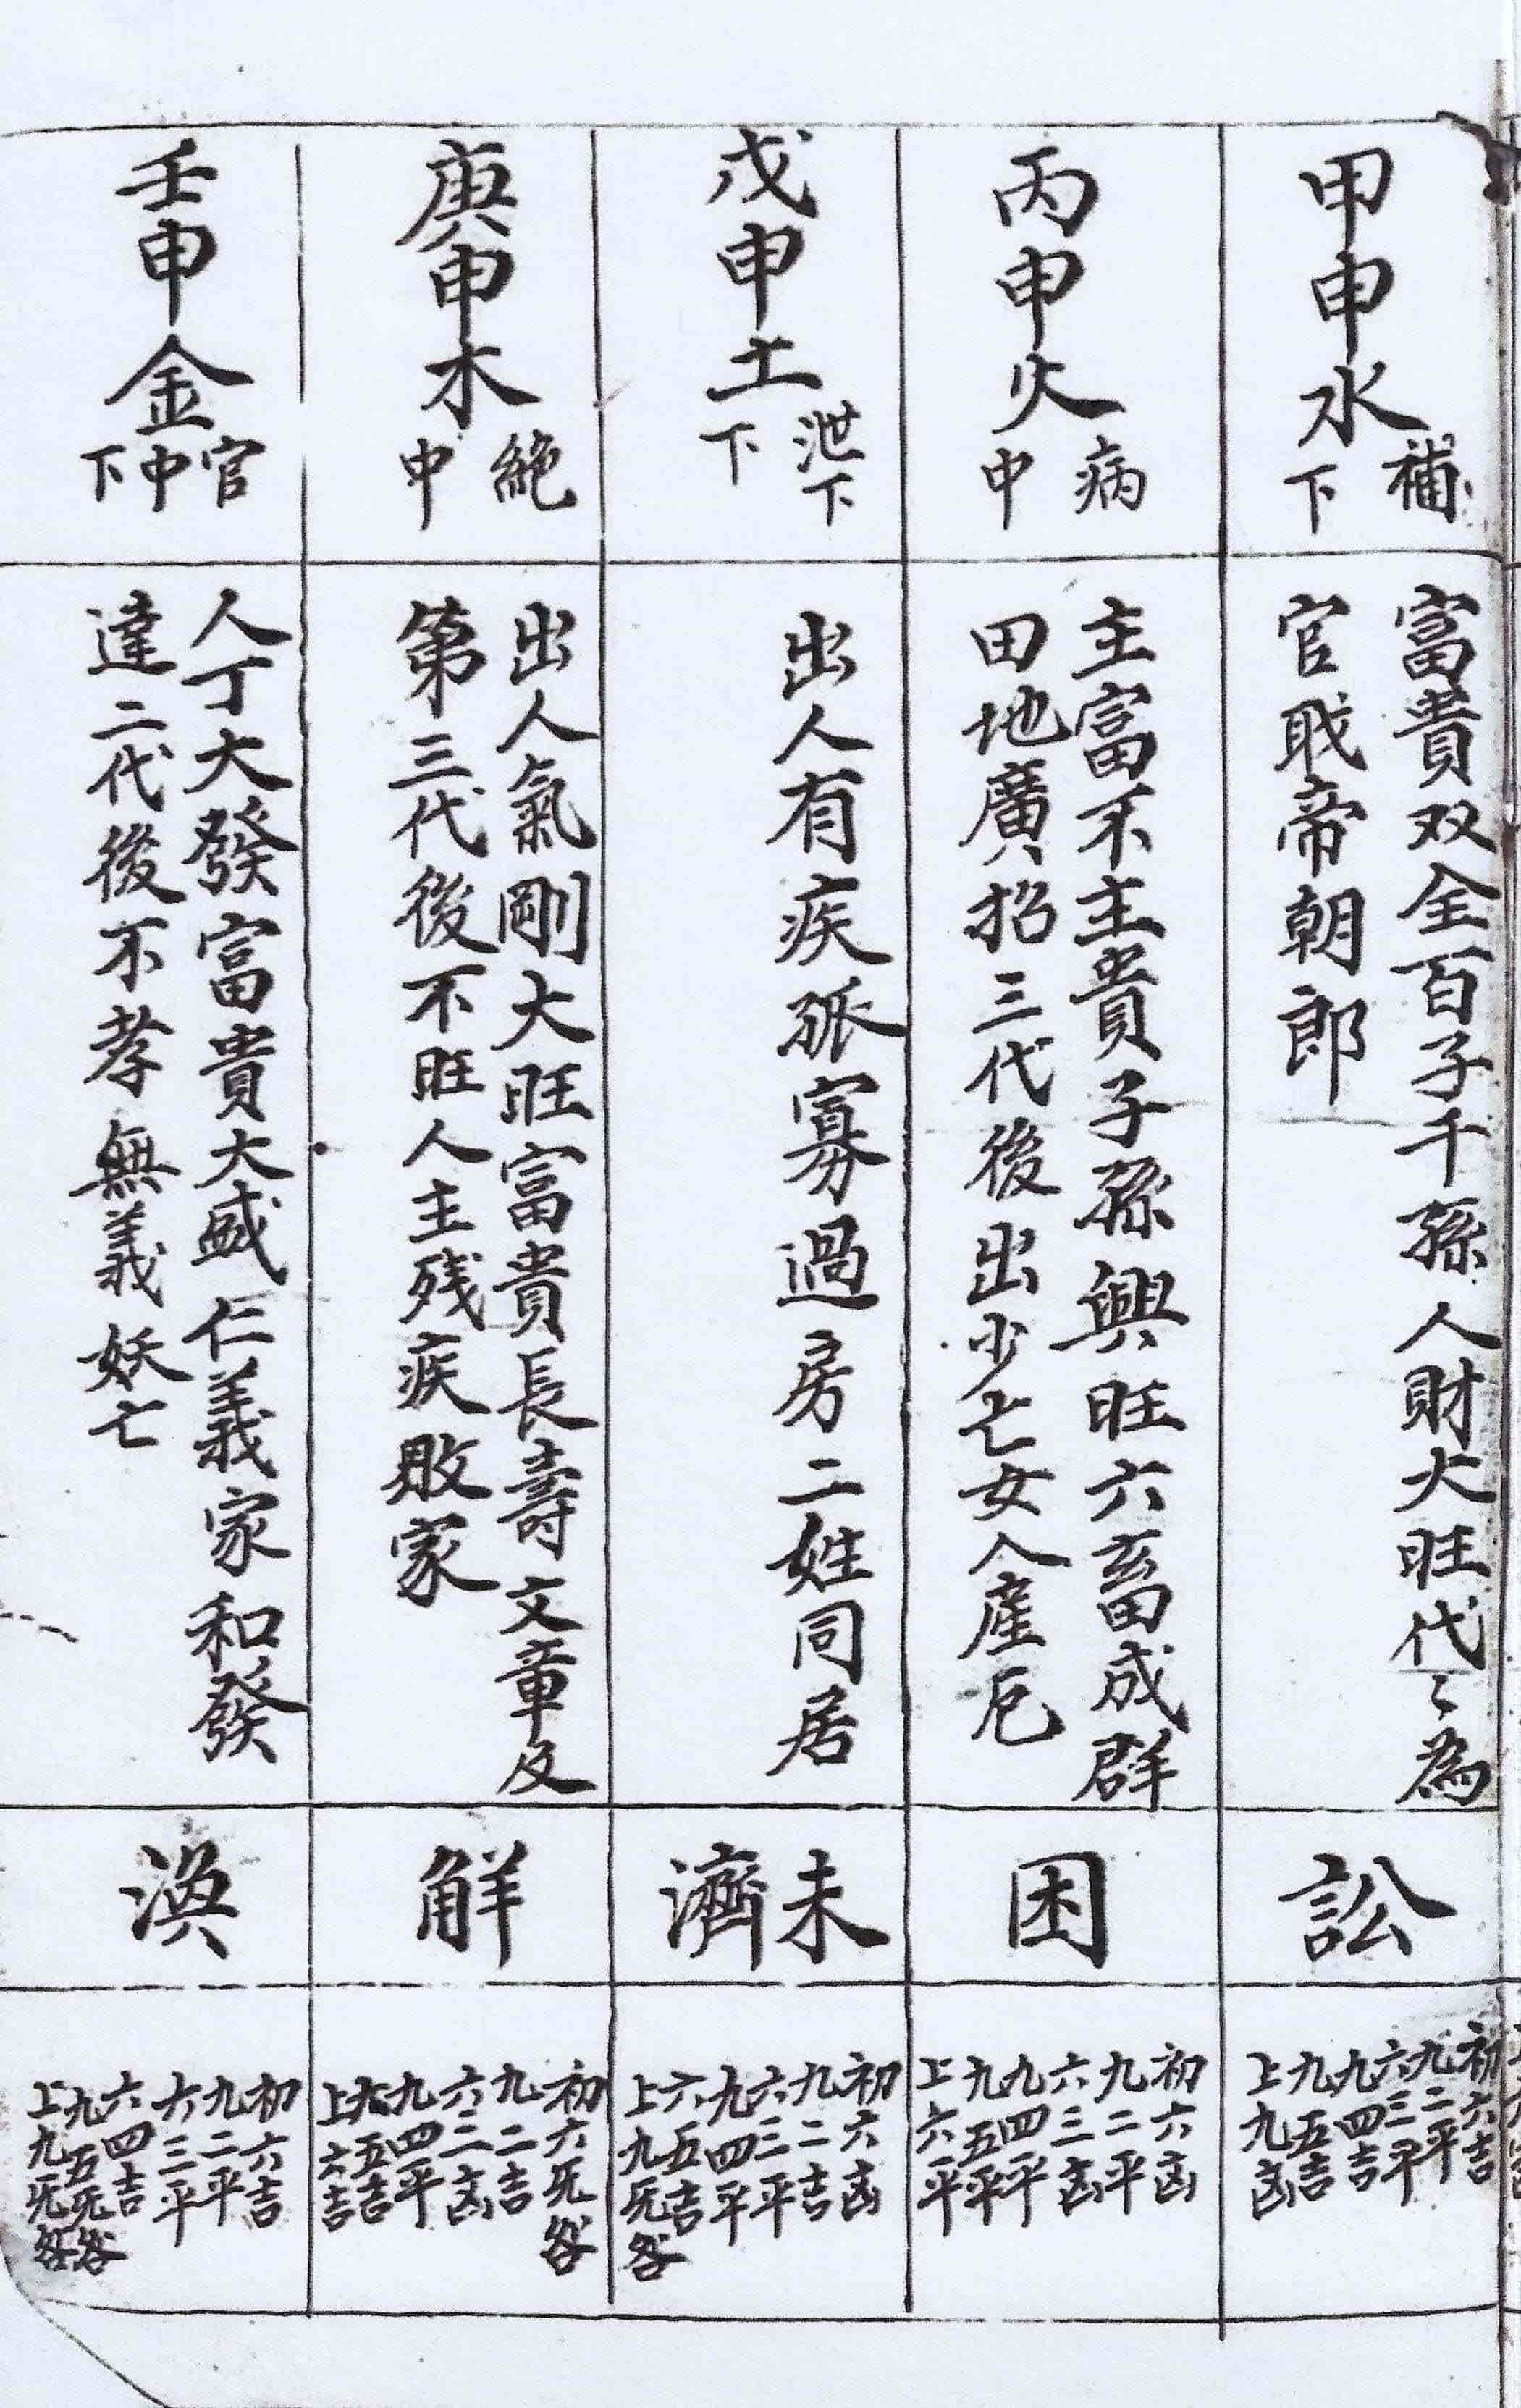 甲申水
補
下
富貴双全百子千孫人財大旺代々為
官戝帝朝郎
訟
初六吉
九二平
六三平
九四吉
九五吉
上九凶
丙申火
病
中
主富不主貴子孫興旺六畜成群
田地廣招三代後出少亡女人産厄
困
初六凶
九二平
六三凶
九四平
九五平
上六平
戊申土
泄下
下
出人有疾孤寡過房二姓同居
未濟
初六凶
九二吉
六三平
九四平
六五吉
上九旡咎
庚申木
絶
中
出人氣剛大旺富貴長壽文章反
第三代後不旺人主残疾敗家
解
初六旡咎
九二吉
六三凶
九四平
六五吉
上六吉
壬申金
官
中
下
人丁大發富貴大盛仁義家和發
達二代後不孝無義妖亡
渙
初六吉
九二平
六三平
六四吉
九五旡咎
上九旡咎